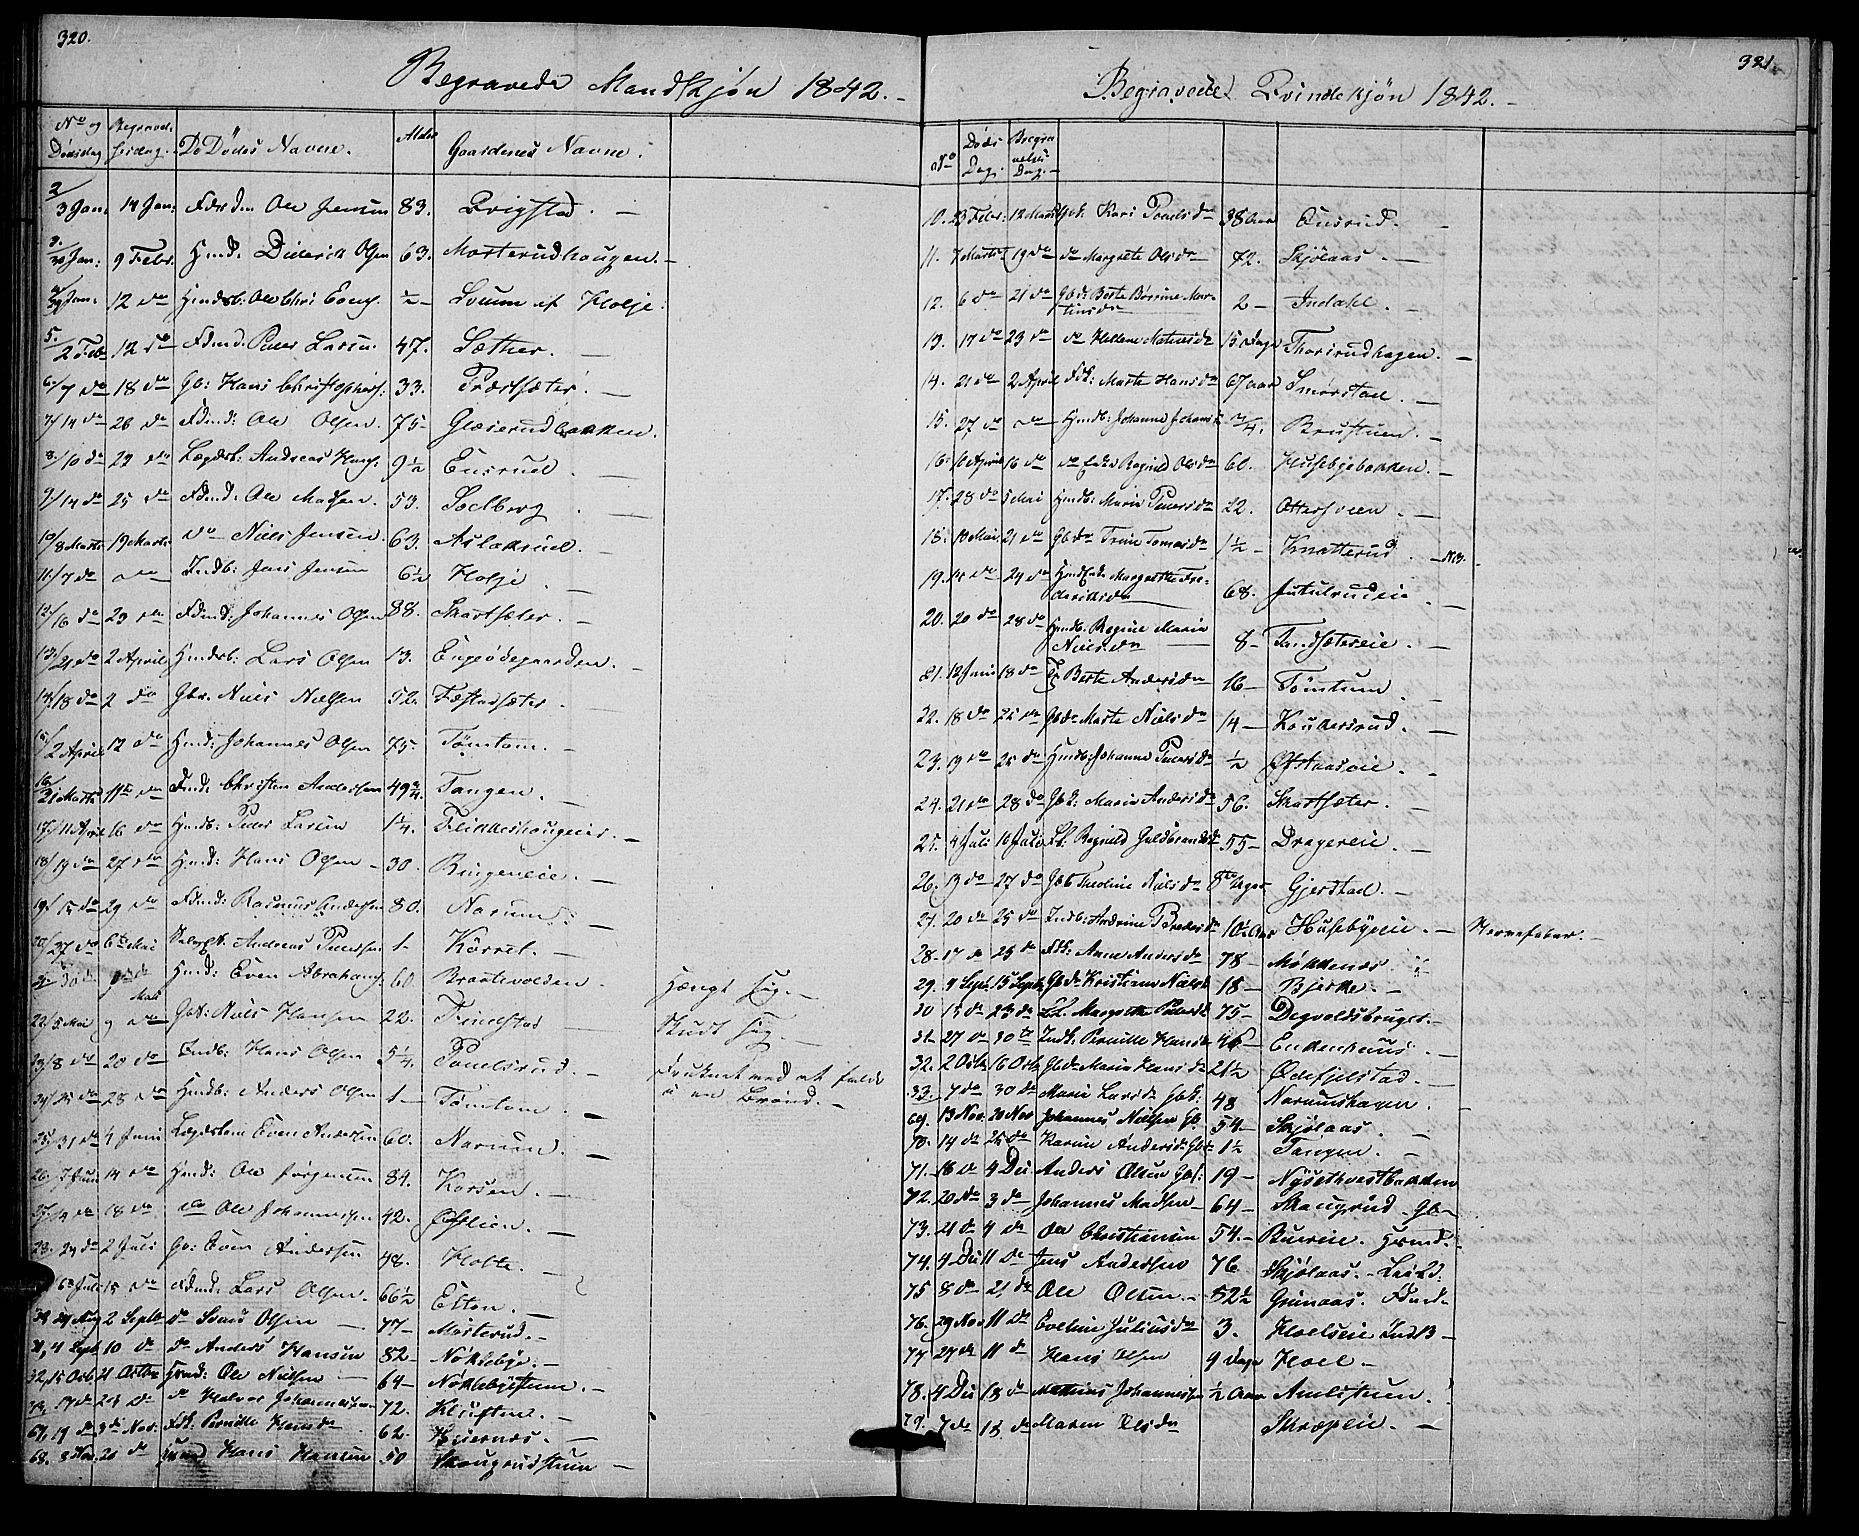 320.
Begravede Mandkjøn 1842.-
No og Dødsdag Begravel: sesdag. De Dødes Navne. Alder Gaardenes Navne.
2/3 Jan: 14 Jan: Fdrd. Ole Jensen 83. Qvigstad. -
3./30 Jan: 9 Febr. Hmd. Diderich Olsen 63. Mosterudhougen. -
Jan: 12 do Hmdsb: Ole Chri ½ - af Holje.
5./2 Febr 12 do Fdmd. Peder Larsen 47. Sæther. -
6./7 do 18 do Gb: Hans Christophers: 33. Præstsæter. -
7/14 do 26 do Fdmd: Ole Olsen. 75 - Glæserudbakken.
8./10 do 29 do Lægdsb. Andreas Hans: 9½ Ensrud. -
9./14 do 25 do Fdmd. Ole Madsen. 53. Soelberg -
10/8 Marts 19 Marts do Niels Jensen. 63. Aslaksrud. -
11./7 do do Indb: Jens Jensen 6½ Holje. -
12./16 do 23 do Fdmd: Johannes Olsen 88. Skartsæter. -
13./21 do 2 April Hmdsb: Lars Olsen 13. Engeødegaarden. -
14/18 do 2 do Gbr. Niels Nielsen 52. Fæstadsæter. -
15/2 April 12 do Hmd: Johannes Olsen 75. Tømtom. -
16/21 Marts 11te do Fdmd. Christen Andersen 49¾. Tangen. -
17./11 April 16 do Hmdb: Peder Larsen 1¼. Flikkeshougeier. -
18/19 do 27 do Hmd: Hans Olsen - 30. Ringeneie. -
19./15 do 29 do Fdmd: Rasmus Andersen 80. Narum. -
20/27 do 6te Mai Andreas Pedersen 1 - Kørret. -
30 do do Hmd: Even Abrahams: 60 Braatevolden. - Hængt sig. -
22/5 Mai 9 do Gbk: Niels Hansen 22. Finelstad - Skudt sig -
23/8 do 20 do Indb: Hans Olsen 5¼. Paulsrud. - druknet ved at falde
24/25 do 28 do Hmdb: Anders Olsen 1 - Tømtom. - i en Brønd. -
25/31 do 4 Juni Lægdslem Even Andersen 60. Narum. -
26./7 Juni 14 do Hmd: Ole Jørgensen 84. Korsen. -
27/14 do 18 do do Ole Johannesen 42. Østlien. -
28. 24 do 2 Juli Gb: Even Andersen 48. Holte. -
Juli 15 do Fdmd: Lars Olsen. 66½ Elton. -
30 29 Aug 2 Septb do Svend Olsen 77 - Mosterud. -
31, 4 Sept 10 do do Anders Hansen 82 - Nøklebye. -
32, 15 Octb 21 Octbr Hmd: Ole Nielsen 64 - Nøklebyestuen. -
33. 17 do 23 do do Halvor Johannesen 72. Kluften. -
67, 19 do 3 do Nov: Fdk. Pernille Hansdr 62. Hiernæs. -
68. 8 Nov. 26 do Hmd Hans Hansen 50 Skougrudstuen -
321.
Begravede Qvindekjøn 1842. -
No Døds Dag. Begravelses Dag. -
10. 23 Febr. 12 Marts Gbk. Kari Poulsdr 38 Aar Ensrud. -
11. 7 Marts 19 do do Margrete Olsdr 72. Skjølaas. -
12. 6 do 21 do Gbd: Berte Børrine Mar-
tinsdr 2 - Indahl. -
13. 17 do 23 do do Hellene Matiesdr 15 Dage Thorsrudhagen. -
14. 21 do 2 April Fdk: Marte Hansdr 67 Aar Smørstad. -
15. 27 do do Hmdb: Johanne Johans: ¾. Brustuen. -
16. 10 April 16 do do Enke Ragnild Olsdr 60. Husebyebakken. -
17. 28 do 5 Mai Hmdb: Maria Pedersdr 22. Ottersveen. -
18. 13 Mai 21 do Gbd: Trine Tomasdr 1½ - Knatterud. - NB.
19. 14 do 24 do Hmd Enke Margrethe Fre-
deriksdr 68. Jutulrudeie. -
20. 20 do 28 do Hmdb. Regine Maria
Nielsdr 8 - Tandsætereie. -
21. 12 Juni 18 do Berte Andersdr 16 - Tømtum. -
22. 18 do 25 do Gbd: Marte Nielsdr 14 - Kouversrud. -
23. 19 do 25 do Hmdb: Johanne Pedersdr ½ Ofstaaseie. -
24. 21 do 28 do Gbk: Maria Andersdr 56. Skartsæter. -
25. 4 Juli 10 Juli Ragnild Guldbrandsdr 55 - Dragereie. -
26. 19 do 27 do Gbb Theoline Nielsdr 8te Uger Gjerstad. -
27. 20 do 25 do Indb: Andrine Pedersdr 10½ Aar Husebyeie. - Nervefeber. -
28. 17 do 25 do Fdk: Anne Andersdr 78 - Møkkenæs.
29. 9 Septr 15 Septr Gbd Kristiane Nielsd 18 - Bjerke. -
30 15 do 23 do Margrethe Pedersd 75 - Degvoldsbruget. -
31. 27 do 30 te Indk. Pernille Hansdr Enkenhuus. -
32. 2 Octb 16 Octb Gbd Maria Hansdr 21½ Ødefjelstad. -
33. 7 do 30 do Marie Larsdr Gbk: 48 Narumshagen. -
69. 13 Nov. 20 Nov Johannes Nielsen Gb. 54 - Skjølaas. -
70. 14 do 26 do Karine Andersdr Gbb: 1½ Tangen -
71. 18 do 4 Dec Anders Olsen Gbs: 19 - Nysethvestbakken
72. 20 do 3 do Johannes Madsen 64 - Skougrud - Gb -
73. 21 do 4 do Ole Christiansen 54. - Bueeie. Husmd.
74. 4 Dec 11 do Jens Andersen 76 Skjølaas. - Lægd:
75 8 do 21 do Ole Olsen. - 52½ Grinaas. Fdmd.
76. 29 Nov 11 do Eveline Juliusdr 3. Hoelseie Indb -
77 27 do 11 do Hans Olsen 9 Dage Hoel -
78. 4 Dec 18 do Mathias Johannesen ½ Aar Amlistuen.
79. 7 do 18 do Maren Olsdr Skræpeie. -